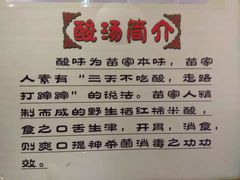 酸汤简介
酸味为苗家本味，苗家
人素有“三天不吃酸，走路
打蹿蹿”的说法。苗家人精
制而成的野生栖红柿米酸，
食之口舌生津，开胃，消食，
则爽口提神杀菌消毒之功功
效。